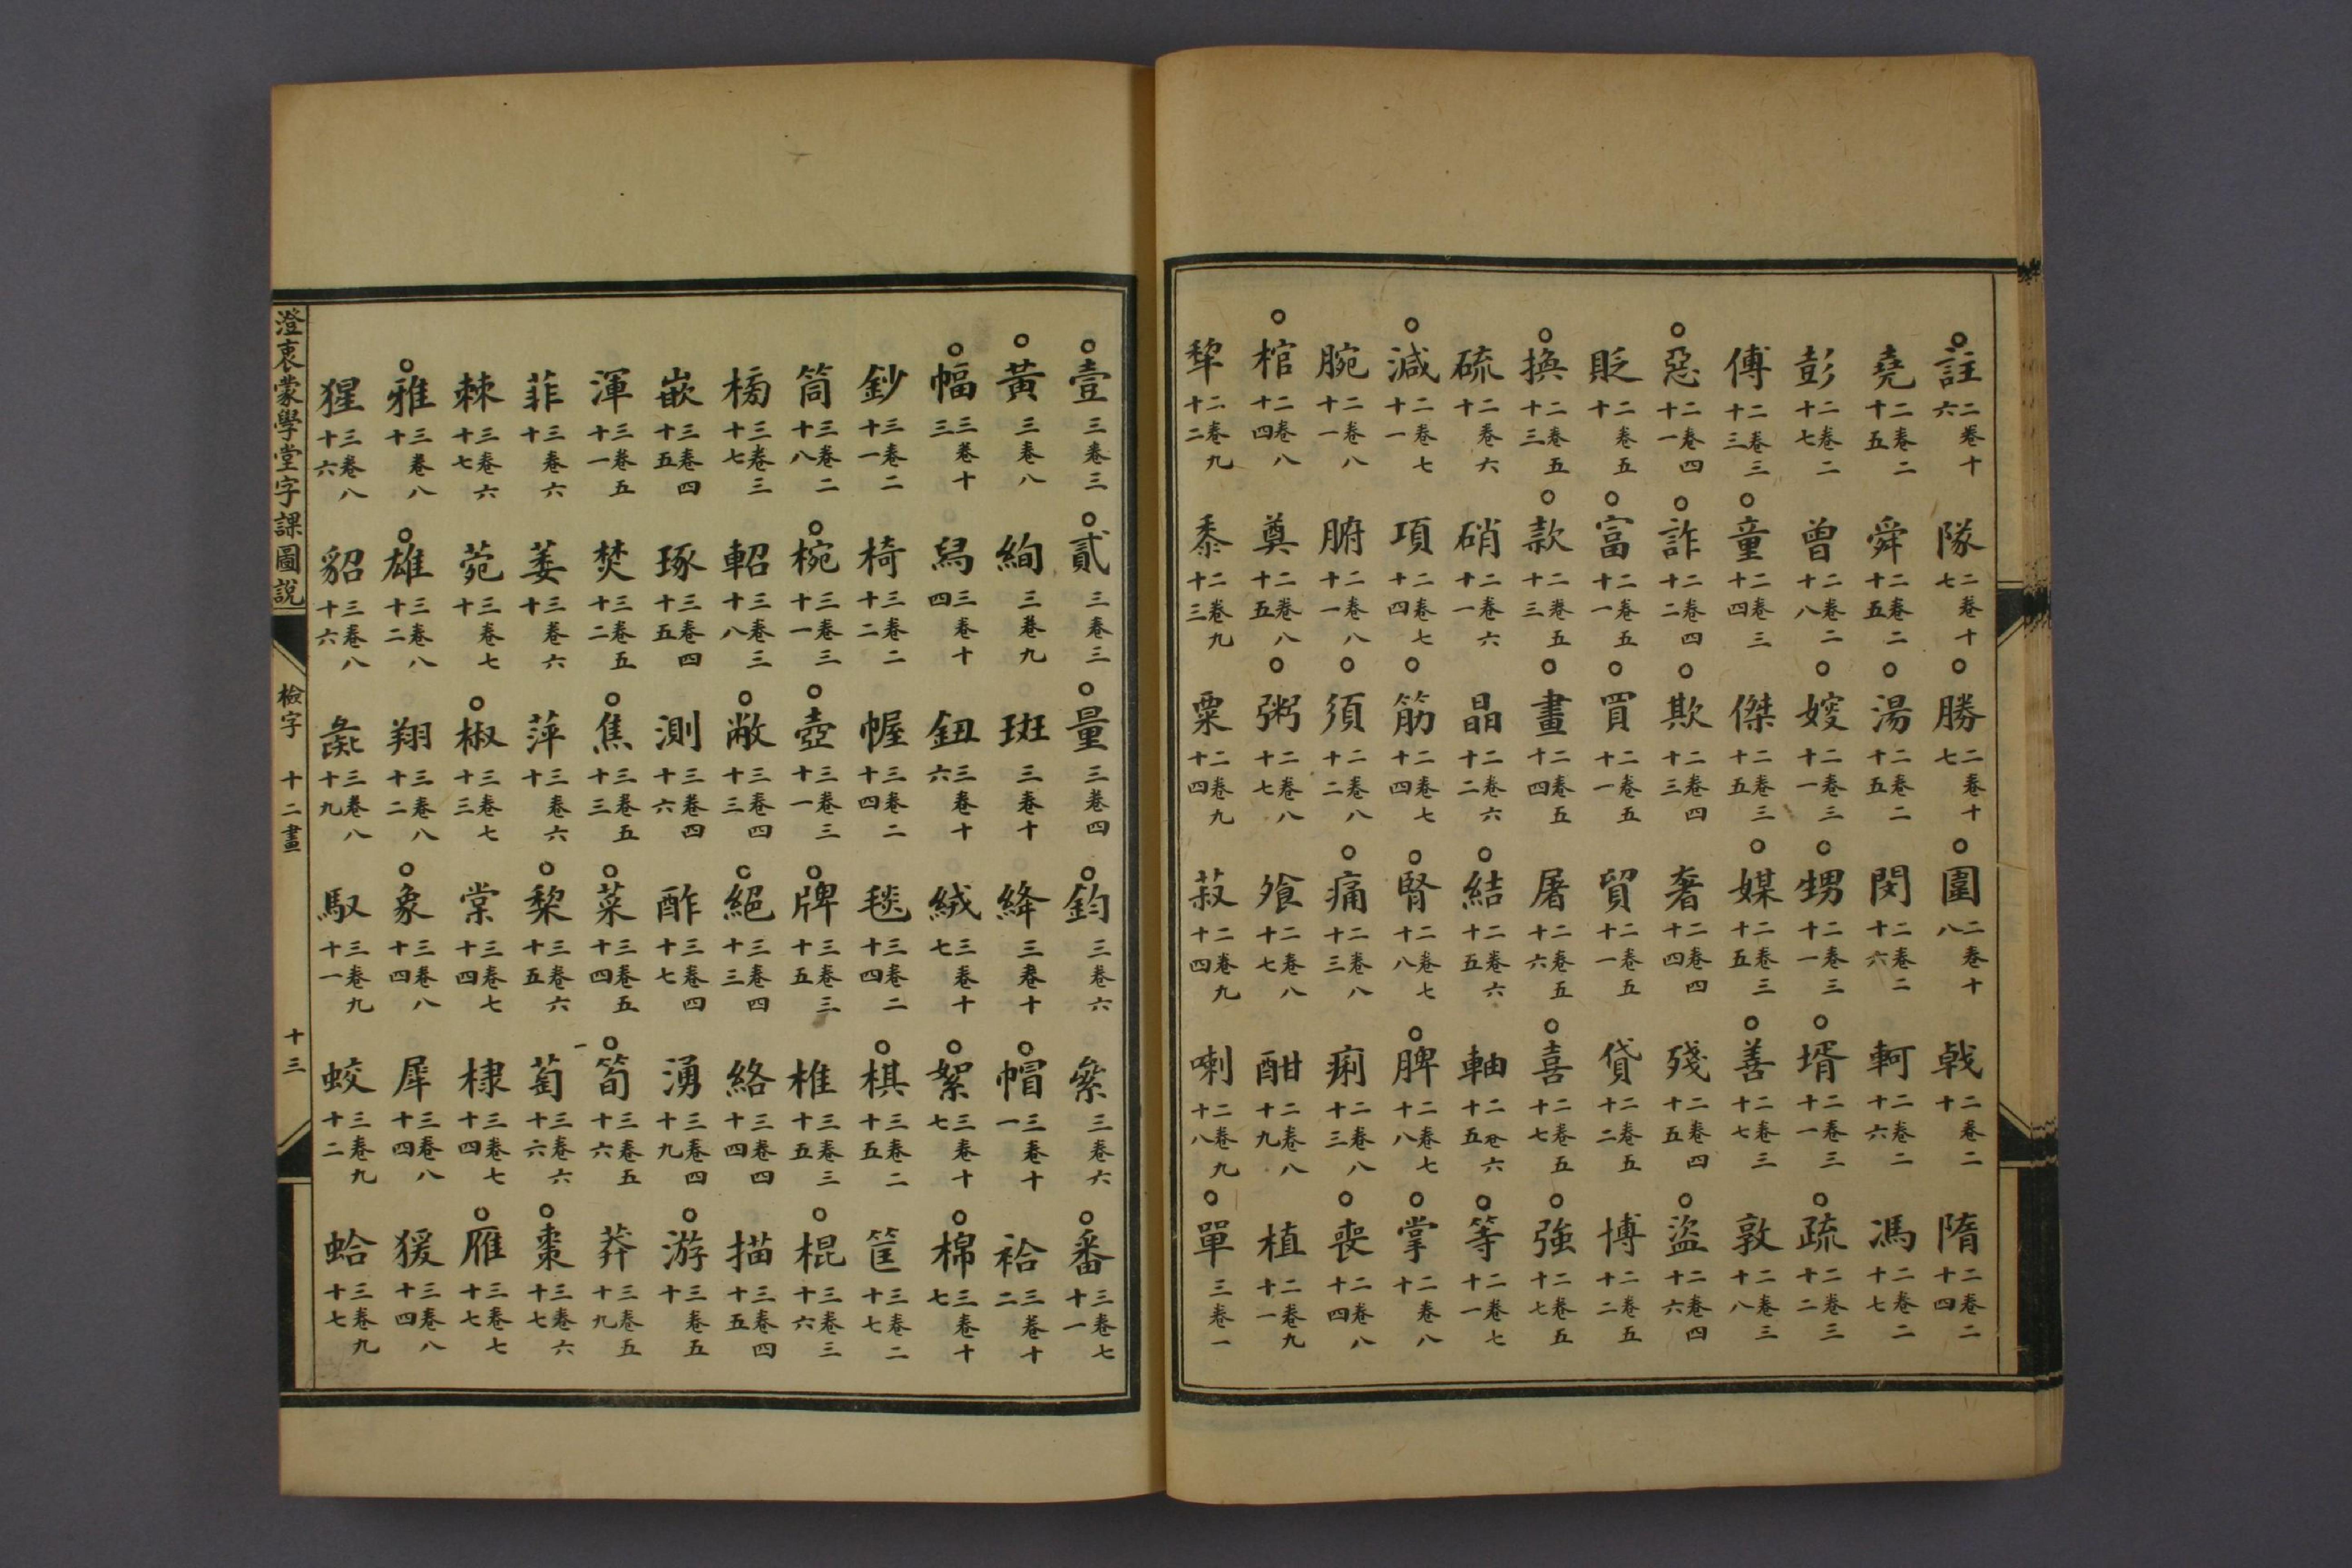 ○註二卷十六 隊二卷十七 ○勝二卷十七 ○圍二卷十八 戟二卷二十 隋二卷二十四
堯二卷二十五 舜二卷二十五 ○湯二卷二十五 閔二卷二十六 軻二卷二十六 馮二卷二十七
彭二卷二十七 曾二卷二十八 ○嫂二卷三十一 ○甥二卷三十一 ○壻二卷三十一 ○疏二卷三十二
傅二卷三十三 ○童二卷三十四 傑二卷三十五 ○媒二卷三十五 ○善二卷三十七 敦二卷三十八
○惡二卷四十一 ○詐二卷四十二 ○欺二卷四十三 奢二卷四十四 殘二卷四十五 ○盜二卷四十六
貶二卷五十 ○富二卷五十一 ○買二卷五十一 貿二卷五十一 貸二卷五十二 博二卷五十二
○換二卷五十三 ○款二卷五十三 ○畫二卷五十四 屠二卷五十六 ○喜二卷五十七 ○強二卷五十七
硫二卷六十 硝二卷六十一 晶二卷六十二 ○結二卷六十五 軸二卷六十五 ○等二卷七十一
○減二卷七十一 項二卷七十四 ○筋二卷七十四 ○腎二卷七十八 ○脾二卷七十八 ○掌二卷八十
腕二卷八十一 腑二卷八十一 ○須二卷八十二 ○痛二卷八十三 痢二卷八十三 ○喪二卷八十四
○棺二卷八十四 奠二卷八十五 ○粥二卷八十七 飧二卷八十七 酣二卷八十九 植二卷九十一
犂二卷九十二 黍二卷九十三 粟二卷九十四 菽二卷九十四 喇二卷九十八 ○單三卷一
○壹三卷三 ○貳三卷三 ○量三卷四 ○鈞三卷六 絫三卷六 ○番三卷七十一
○黃三卷八 絢三卷九 斑三卷十 絳三卷十 ○帽三卷十一 袷三卷十二
○幅三卷十三 舃三卷十四 鈕三卷十六 絨三卷十七 ○絮三卷十七 ○棉三卷十七
鈔三卷二十一 椅三卷二十二 幄三卷二十四 毯三卷二十四 ○棋三卷二十五 筐三卷二十七
筒三卷二十八 ○椀三卷三十一 ○壺三卷三十一 ○牌三卷三十五 椎三卷三十五 ○棍三卷三十六
三卷三十七 軺三卷三十八 ○敝三卷四十三 ○絕三卷四十三 絡三卷四十四 描三卷四十五
嵌三卷四十五 琢三卷四十五 測三卷四十六 酢三卷四十七 湧三卷四十九 ○游三卷五十
渾三卷五十一 焚三卷五十二 ○焦三卷五十三 ○菜三卷五十四 ○筍三卷五十六 莽三卷五十九
菲三卷六十 萎三卷六十 萍三卷六十 ○棃三卷六十五 萄三卷六十六 ○棗三卷六十七
棘三卷六十七 菀三卷七十 ○椒三卷七十三 棠三卷七十四 棣三卷七十四 ○雁三卷七十七
○雅三卷八十 ○雄三卷八十二 翔三卷八十二 ○象三卷八十四 犀三卷八十四 猨三卷八十四
猩三卷八十六 貂三卷八十六 彘三卷八十九 馭三卷九十一 蛟三卷九十二 蛤三卷九十七
澄衷蒙學堂字課圖說 檢字 十二畫 十三